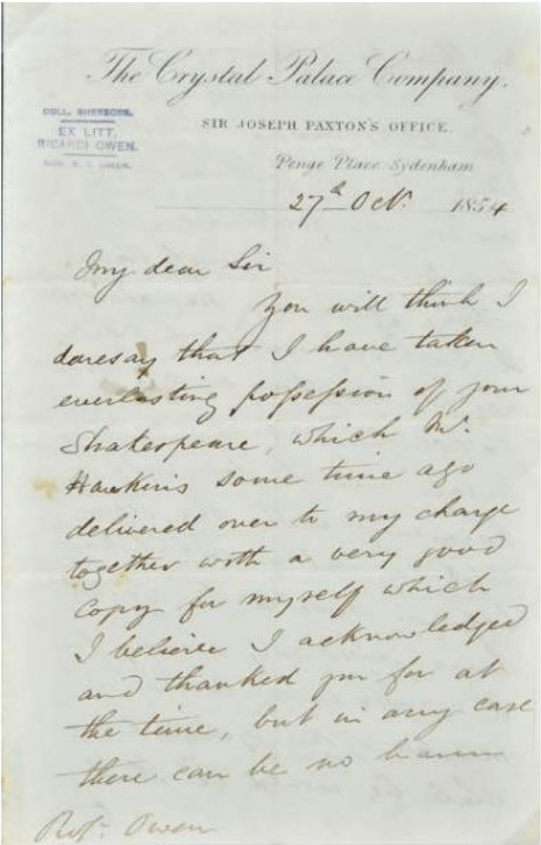 The Crystal Palace Company.
COLL. SHERBORN.
EX LITT.
RICARDI OWEN.
SIR JOSEPH PAXTON'S OFFICE.
Penge Place, Sydenham
27th Oct. 1854
My dear Sir
You will think I
daresay that I have taken
everlasting possession of your
Shakespeare, which Mr.
Hawkins some time ago
delivered over to my charge
together with a very good
copy for myself which
I believe I acknowledged
and thanked you for at
the time, but in any case
there can be no harm
Prof. Owen